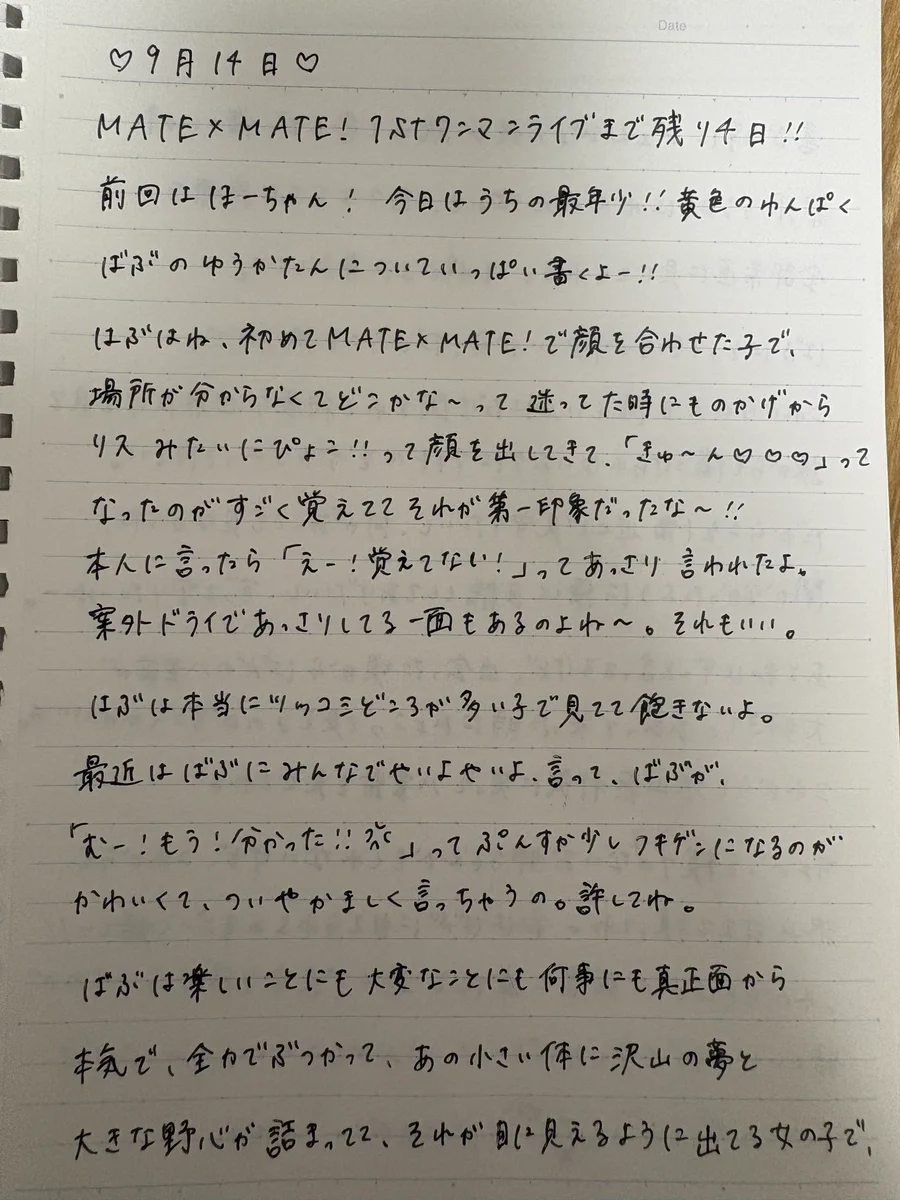 Date
♡9月14日♡
MATE×MATE! 1stワンマンライブまで残り4日!!
前回はほーちゃん! 今日はうちの最年少!! 黄色のわんぱく
ばぶのゆうかたんについていっぱい書くよー!!
ばぶはね、初めてMATE×MATE!で顔を合わせた子で、
場所が分からなくてどこかな〜って迷ってた時にものかげから
リスみたいにぴょこ!!って顔を出してきて、「きゅ〜ん♡♡♡」って
なったのがすごく覚えててそれが第一印象だったな〜!!
本人に言ったら「えー!覚えてない!」ってあっさり言われたよ。
案外ドライであっさりしてる一面もあるのよね〜。それもいい。
ばぶは本当にツッコミどころが多い子で見てて飽きないよ。
最近はばぶにみんなでやいよやいよ、言って、ばぶが、
「むー!もう!分かった!!💢」ってぷんすか少しフキゲンになるのが
かわいくて、ついやかましく言っちゃうの。許してね。
ばぶは楽しいことにも大変なことにも何事にも真正面から
本気で、全力でぶつかって、あの小さい体に沢山の夢と
大きな野心が詰まってて、それが目に見えるように出てる女の子で、